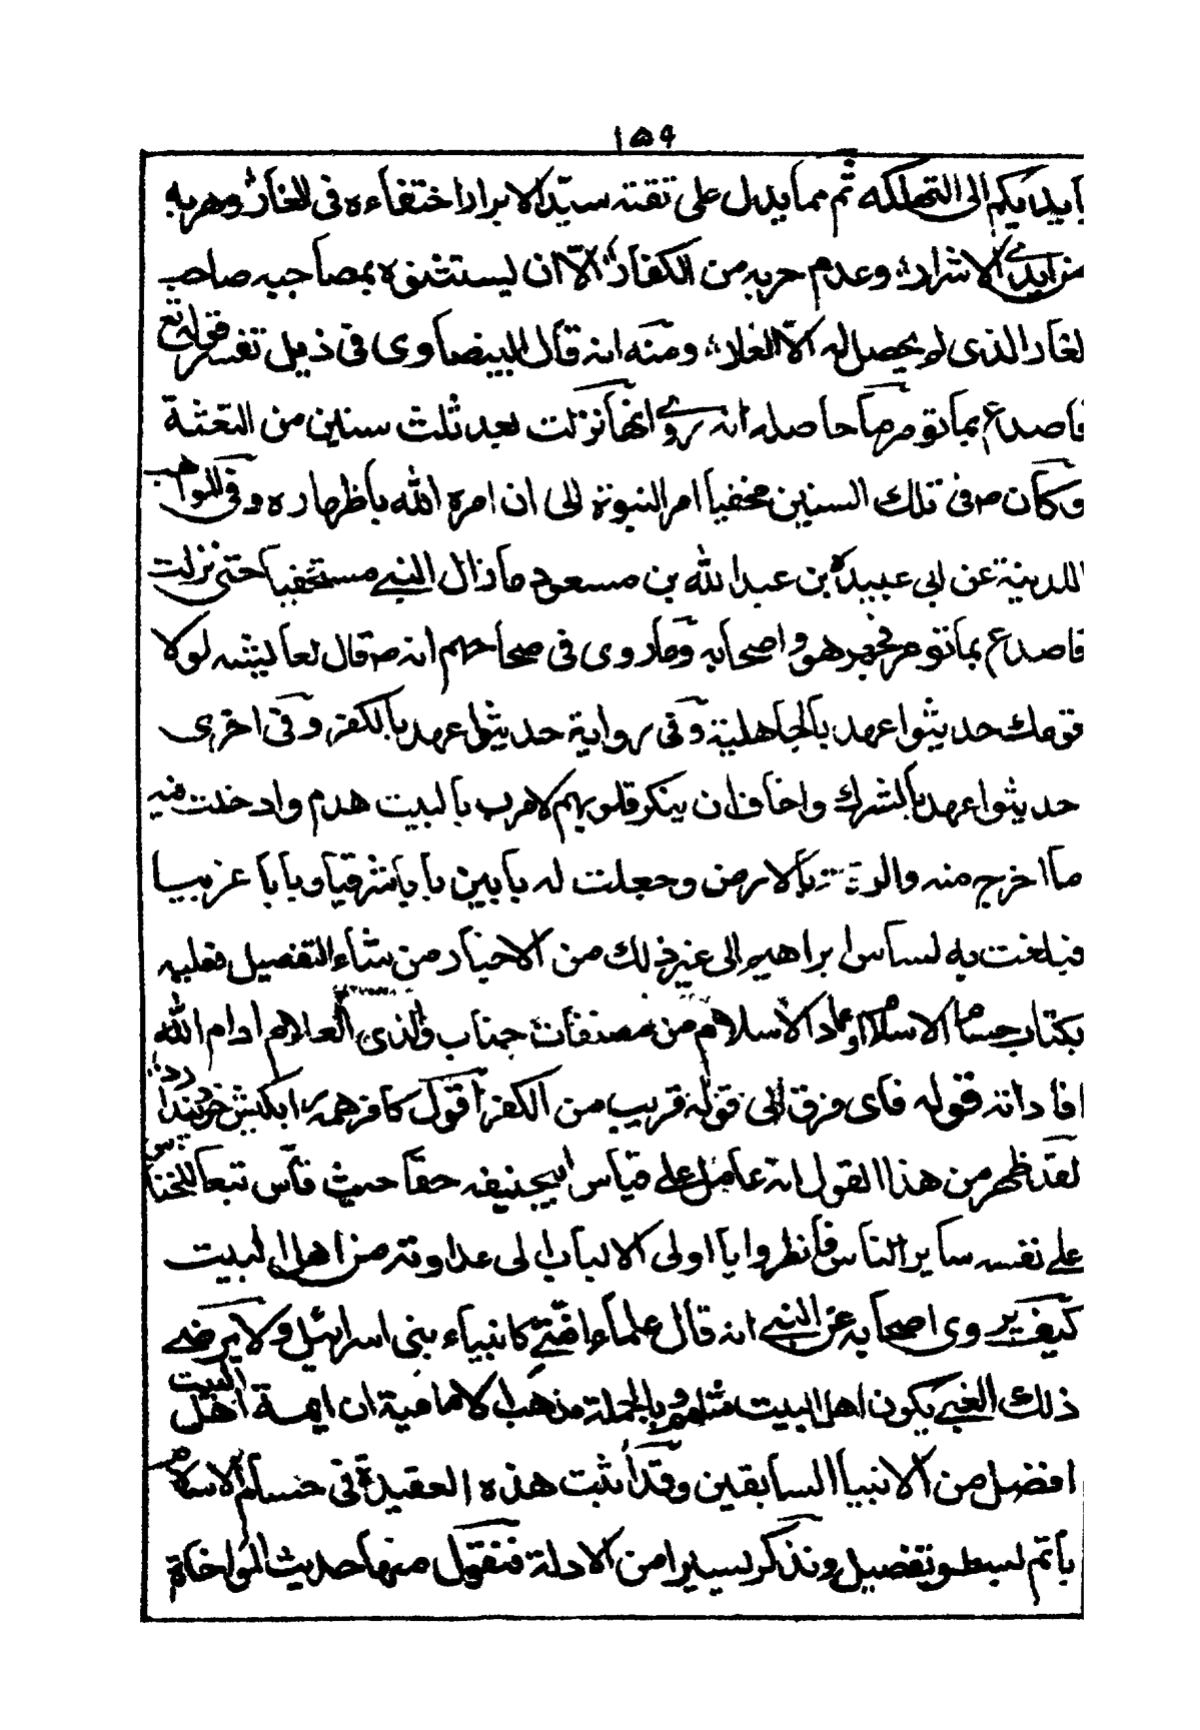 ١٥٩
بايديكم الى التهلكه ثم مما يدل على تقته سيد الابرار اختفاءه فى الغار وهربه
من ايدى الاشرار وعدم حربه من الكفار الا ان يستثنوه بمصاحبه صاحب
لغار الذى لم يحصل له الا الغلا ومنه انه قال البيضاوى فى ذيل تفسير قوله تع
فاصدع بما تومر ما حاصله انه روى انها نزلت بعد ثلث سنين من البعثة
وكان ص فى تلك السنين مخفيا امر النبوة الى ان امره الله باظهاره وفى المواهب
اللدنية عن ابى عبيدة بن عبد الله بن مسعود ما زال النبى مستخفيا حتى نزلت
فاصدع بما تومر فجهر هو واصحابه وما روى فى صحاحهم انه ص قال لعايشه لولا
قومك حديثوا عهد بالجاهلية وفى رواية حديثوا عهد بالكفر وفى اخرى
حديثوا عهد بالشرك واخاف ان ينكر قلوبهم لامرت بالبيت هدم وادخلت فيه
ما اخرج منه والزقته بالارض وجعلت له بابين بابا شرقيا وبابا غربيا
فبلغت به لساس ابراهيم الى غير ذلك من الاخبار من شاء التفصيل فعليه
بكتاب حسام الاسلام او عماد الاسلام من مصنفات جناب والذى العلام ادام الله
افاداته قوله فاى فرق الى قوله قريب من الكفر اقول كافر همه را بكيش خود پندارد
لقد ظهر من هذا القول انه عامل على قياس ابيحنيفه حقا حيث قاس تبعا للخناس
على نفسه ساير الناس فانظروا يا اولى الالباب الى عداوته من اهل البيت
كيف يروى اصحابه عن النبى انه قال علماء امتى كانبياء بنى اسرائيل ولا يرضى
ذلك الغبى بكون اهل البيت مثلهم وبالجملة مذهب الامامية ان ايمة اهل البيت
افضل من الانبيا السابقين وقد اثبت هذه العقيدة فى حسام الاسلام
باتم بسط وتفصيل ونذكر يسيرا من الادلة فنقول منها حديث المواخاة